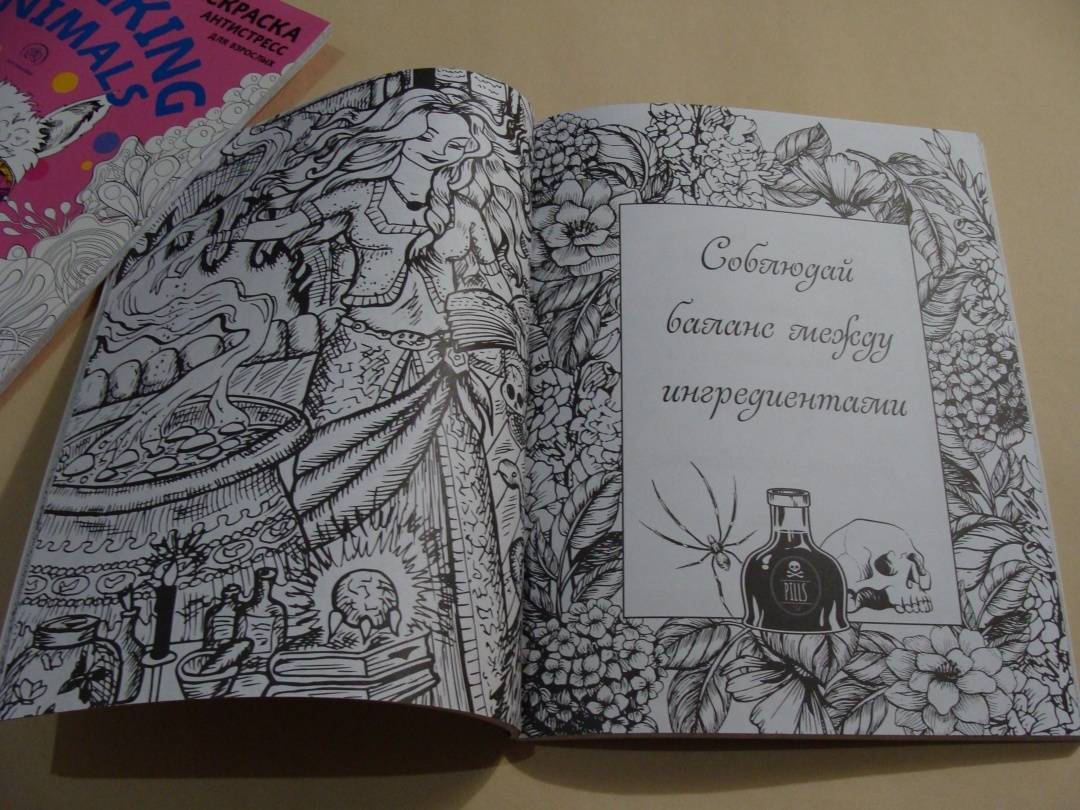 СКРАСКА
АНТИСТРЕСС
ДЛЯ ВЗРОСЛЫХ
KING
NIMALS
Соблюдай
баланс между
ингредиентами
PILLS